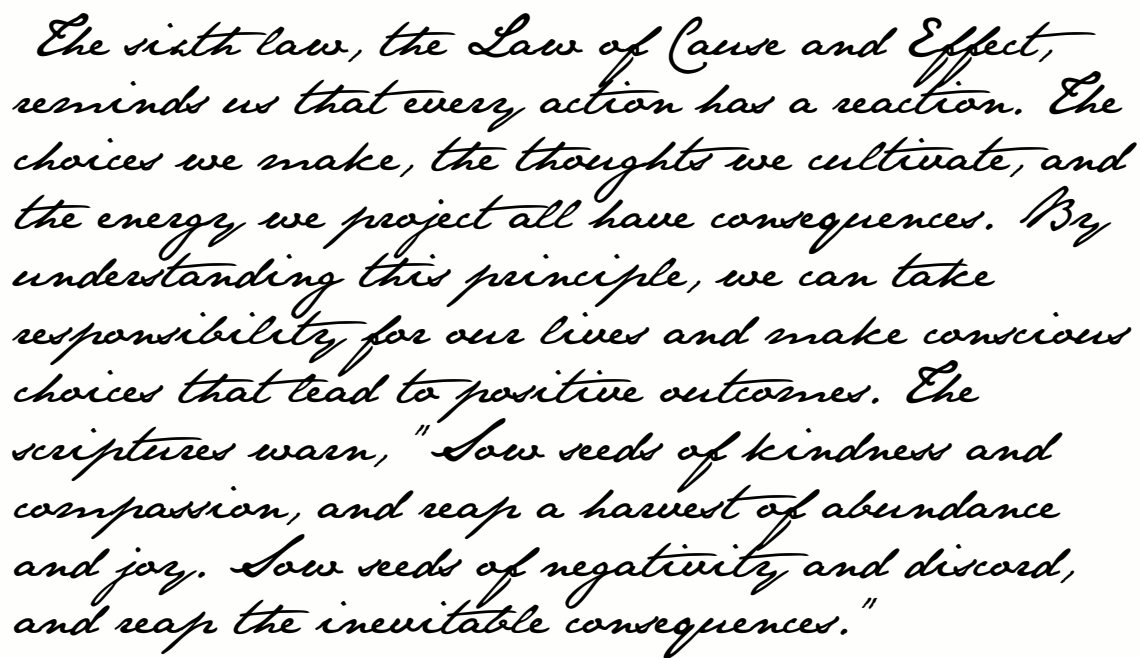 The sixth law, the Law of Cause and Effect,
reminds us that every action has a reaction. The
choices we make, the thoughts we cultivate, and
the energy we project all have consequences. By
understanding this principle, we can take
responsibility for our lives and make conscious
choices that lead to positive outcomes. The
scriptures warn, "Sow seeds of kindness and
compassion, and reap a harvest of abundance
and joy. Sow seeds of negativity and discord,
and reap the inevitable consequences."